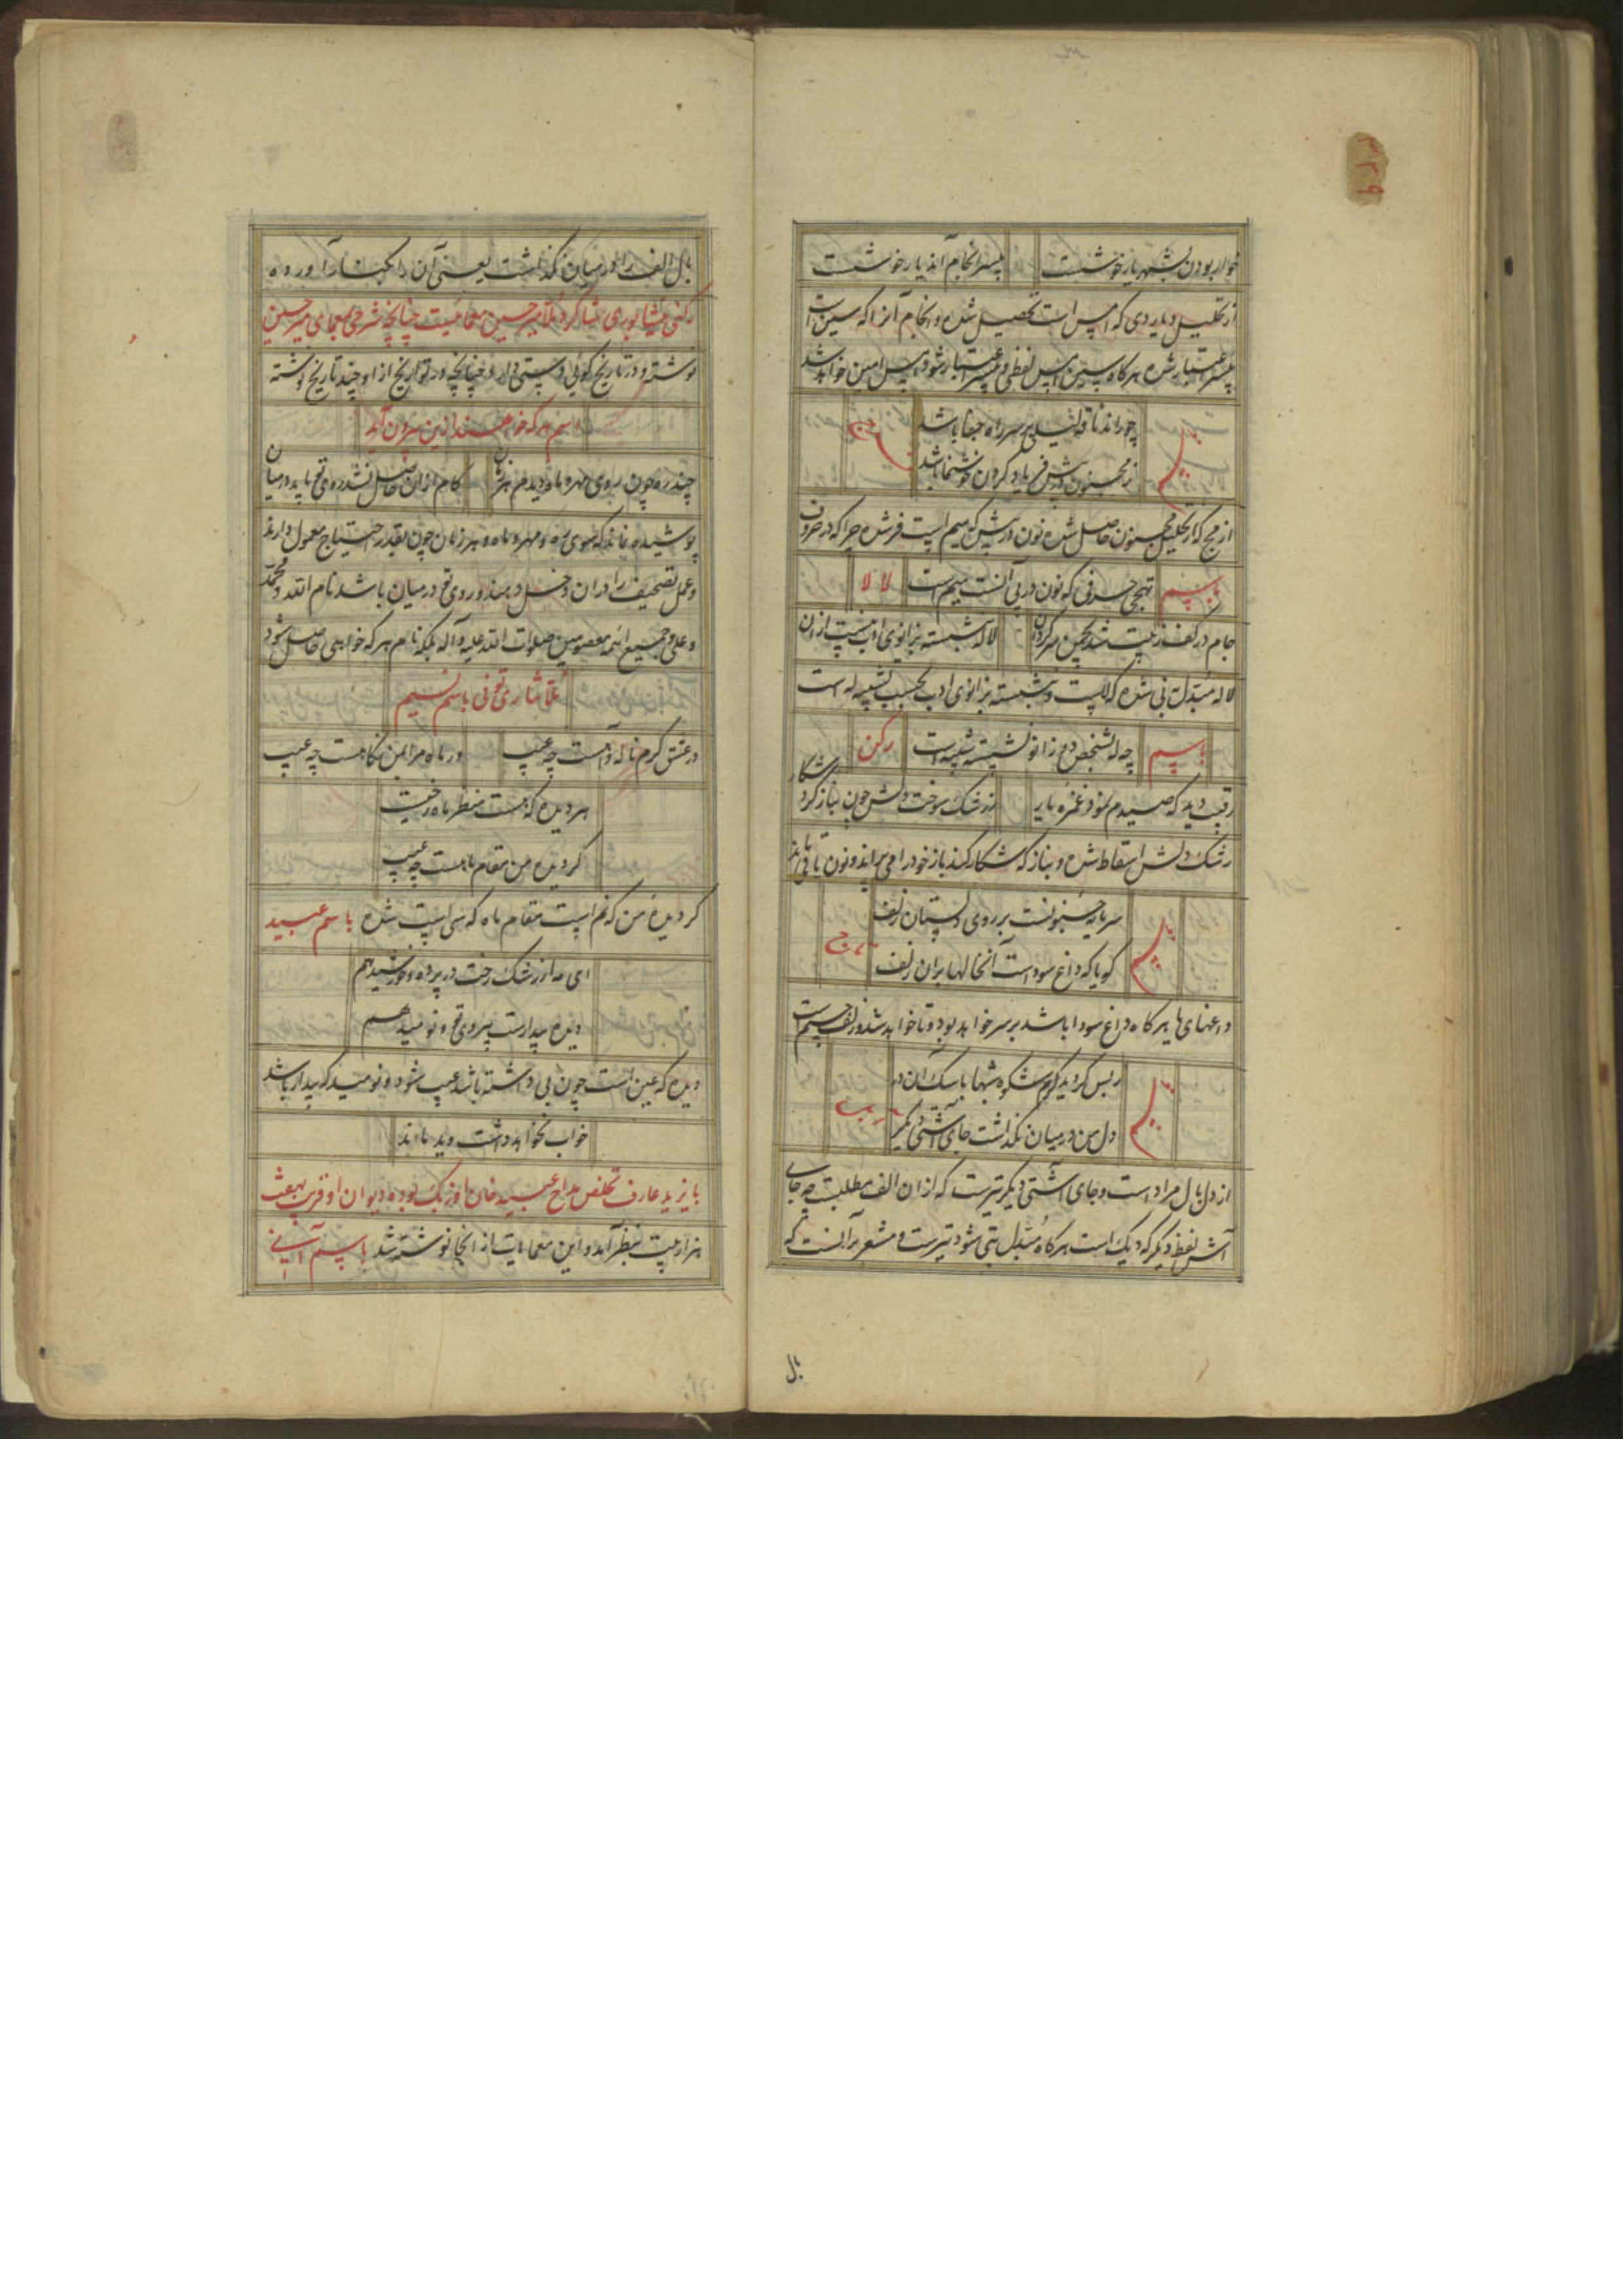 ۳۲۹
خوار بودن بشهر یار خوشست
بیسر انجام آید یار خوشست
از تحلیل و یاردی که امس است تحصیل شده و انجام آنرا که سین است
باسم
چو راند ناقه لیلی بر سر راه جفا باشد
ز مجنون درپیش فریاد کردن خوشنما باشد
از مج که از تحلیل مجنون حاصل شده نون درپیش که میم است
تهجی حرفی که نون در پی آنست میم است
باسم
لالا
جام در کف
لاله نشسته بزانوی ادب نیست از ان
لاله مبدل بنی شده که لاست و نشسته بزانوی ادب بحسب تشبیه له است
باسم
چه له شخص دو زانو نشسته شبیه است
رکن
رقیب دید که صیدم نمود غمزه یار
ز رشک سوخت دلش چون بناز کرد شکار
رشک دلش اسقاط شده و بناز که شکار کند باز خود را می پراند و نون باقی ماند
باسم
سرمایه جنونست بر روی دلستان زلف
گویا که داغ سوداست آنخالها بران زلف
تاج
داغهای ها هرکاه داغ سودا باشد بر سر خواهد بود و تا خواهد شد و زلف جیم است
باسم
ز بس گردید گرم شکوه شبها با سگ آن در
دل من در میان نگذاشت جای آشتی دیگر
از دل بال مراد است و جای آشتی دیگر تیرست که از ان الف مطلبست چه جای
آتش لفظ دیگر که دیگ است هرکاه مبدل بتی شود تیرست و مشعر بر آنست که
بال
بال الف را در میان نگذاشت یعنی آن را بکنار آورده
رکنی نیشابوری شاگرد ملا میر حسین معمائیست چنانچه شرحی بمعمای میر حسین
نوشته و در تاریخ گوئی او دستی دارد چنانچه در تواریخ از او چند تاریخ نوشته
اسم هر که خواهند ازین بیرون آید
چند ره چون روی مهر و ماه دیدم هر زمان
کام از ان حاصل نشد روی تو باید در میان
پوشیده نماند که سوی ره و مهر و ماه و هر زمان چون بقدر احتیاج معمول دارند
و عمل تصحیف را در ان دخل دهند و روی تو در میان باشد نام الله و محمد
و علی و جمیع ائمه معصومین صلوات الله علیه و آله بلکه نام هر که خواهی حاصل شود
ملا نثاری تونی باسم نسیم
در عشق گرم ناله و آهست چه عیب
ور ماه مرا بمن نگاهست چه عیب
هر دیده که هست منظر ماه رخیست
گر دیده من مقام ماهست چه عیب
گر دیده من که نم است مقام ماه که سی است شده باسم عبید
ای مه از رشک رخت در پرده خورشید هم
دیده بیدارست بیروی تو و نومید هم
دیده که عین است چون بی داشته باشد عیب شود و نومید که بیدار باشد
خواب نخواهد داشت وید ماند
بایزید عارف تخلص مداح عبید خان اوزبک بوده دیوان او قریب بهفت
هزار بیت بنظر آمد و این معماهایت از انجا نوشته شد باسم آنسی